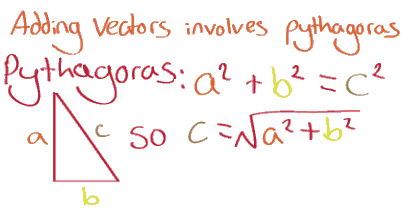 Adding Vectors involves pythagoras
Pythagoras: a² + b² = c²
a
c
so c = √a² + b²
b